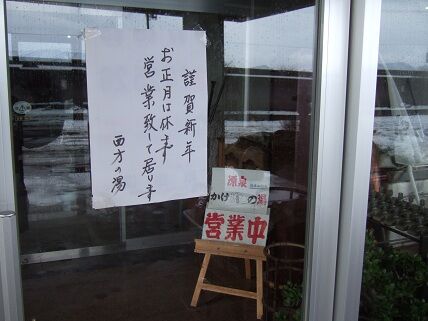 謹賀新年
お正月は休まず
営業致して居ります
西方の湯
源泉
かけ の湯
営業中